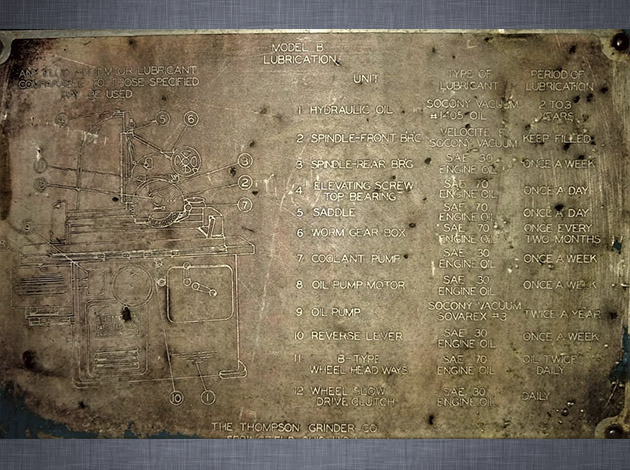 MODEL B
LUBRICATION
ANY FLUID OR LUBRICANT
TO THOSE SPECIFIED
BE USED
UNIT TYPE OF LUBRICANT PERIOD OF LUBRICATION
1 HYDRAULIC OIL SOCONY VACUUM OIL 2 TO 3 YEARS
2 SPINDLE-FRONT BRG VELOCITE SOCONY VACUUM KEEP FILLED
3 SPINDLE-REAR BRG SAE 30 ENGINE OIL ONCE A WEEK
4 ELEVATING SCREW TOP BEARING SAE 70 ENGINE OIL ONCE A DAY
5 SADDLE SAE 70 ENGINE OIL ONCE A DAY
6 WORM GEAR BOX SAE 70 ENGINE OIL ONCE EVERY TWO MONTHS
7 COOLANT PUMP SAE 30 ENGINE OIL ONCE A WEEK
8 OIL PUMP MOTOR SAE 30 ENGINE OIL ONCE A WEEK
9 OIL PUMP SOCONY VACUUM SOVAREX #3 TWICE A YEAR
10 REVERSE LEVER SAE 30 ENGINE OIL ONCE A WEEK
11 B-TYPE WHEEL HEAD WAYS SAE 70 ENGINE OIL OIL TWICE DAILY
12 WHEEL SLOW DRIVE CLUTCH SAE 30 ENGINE OIL DAILY
5 6
3
2
7
10 1
THE THOMPSON GRINDER CO.